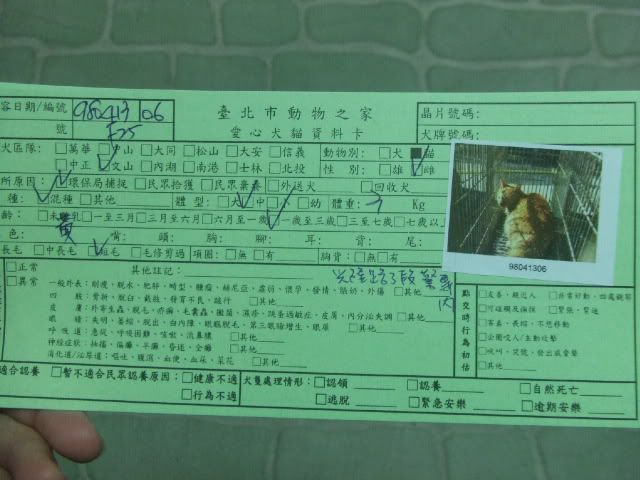 容日期/編號 98041306
臺北市動物之家
晶片號碼:
號 F25
愛心犬貓資料卡
犬牌號碼:
犬區隊: □萬華 □中山 □大同 □松山 □大安 □信義
動物別: □犬 ■貓
□中正 □文山 □內湖 □南港 □士林 □北投
性 別: □雄 □雌
所原因: □環保局捕捉 □民眾拾獲 □民眾棄養 □外送犬 □回收犬
種: □混種 □其他
體型 □大 □中 □小 □幼 體重: 3 Kg
齡: □未離乳 □一至三月 □三月至六月 □六月至一歲 □一歲至三歲 □三至七歲 □七歲以上
色: 黃 嘴: 頭: 胸: 腳: 耳: 背: 尾:
長毛 □中長毛 □短毛 □毛修剪過 項圈: □無 □有 胸背: □無 □有
98041306
□正常
其他註記:
□異常
一般外表: 削瘦、脫水、肥胖、畸型、腫瘤、赫尼亞、虛弱、懷孕、發情、脹奶、外傷 □其他
四 肢: 骨折、脫臼、截肢、發育不良、跛行 □其他
皮 膚: 外寄生蟲、脫毛、疥癬、毛囊蟲、黴菌、濕疹、跳蚤過敏症、皮膚、內分泌失調 □其他
眼 睛: 失明、萎縮、脫出、白內障、眼瞼脫毛、第三眼瞼增生、眼屎 □其他
呼吸道: 急促、呼吸困難、咳嗽、流鼻膿 □其他
神經症狀: 抽搐、偏癱、半癱、昏迷、全癱 □其他
消化道/泌尿道: 嘔吐、腹瀉、血便、血尿、尿花 □其他
點交時行為初估
□友善、親近人
□可碰觸及撫摸
□緊張、緊迫
□害羞、長縮、不想移動
□企圖咬人/主動攻擊
□吠叫、哭號、發出威脅聲
□其他
適合認養 □暫不適合民眾認養原因: □健康不適
□行為不適
犬隻處理情形: □認領 □認養 □自然死亡
□逃脫 □緊急安樂 □逾期安樂